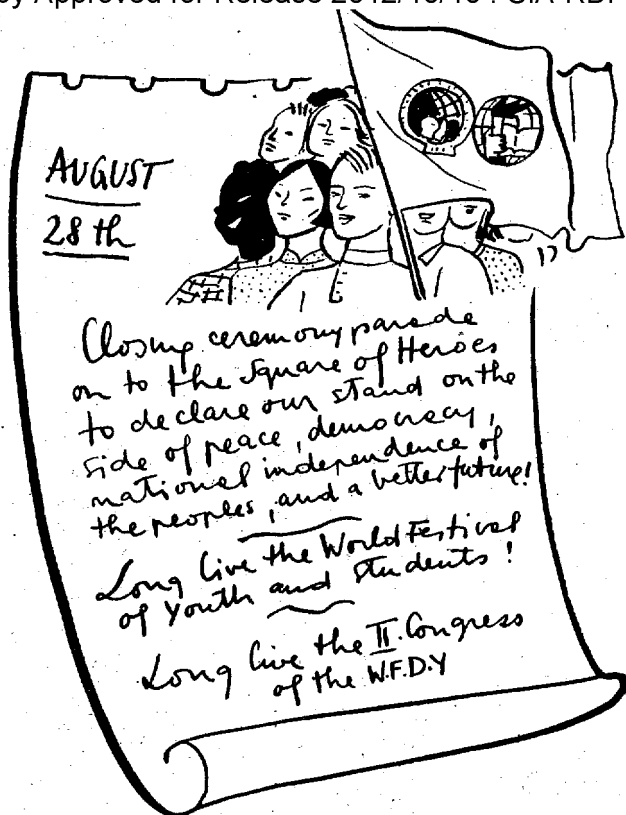 Approved for Release 2012/10/10 : CIA-RDP
AUGUST
28th
Closing ceremony parade
on to the Square of Heroes
to declare our stand on the
side of peace, democracy,
national independence of
the peoples, and a better future!
Long live the World Festival
of Youth and Students!
Long live the II. Congress
of the W.F.D.Y